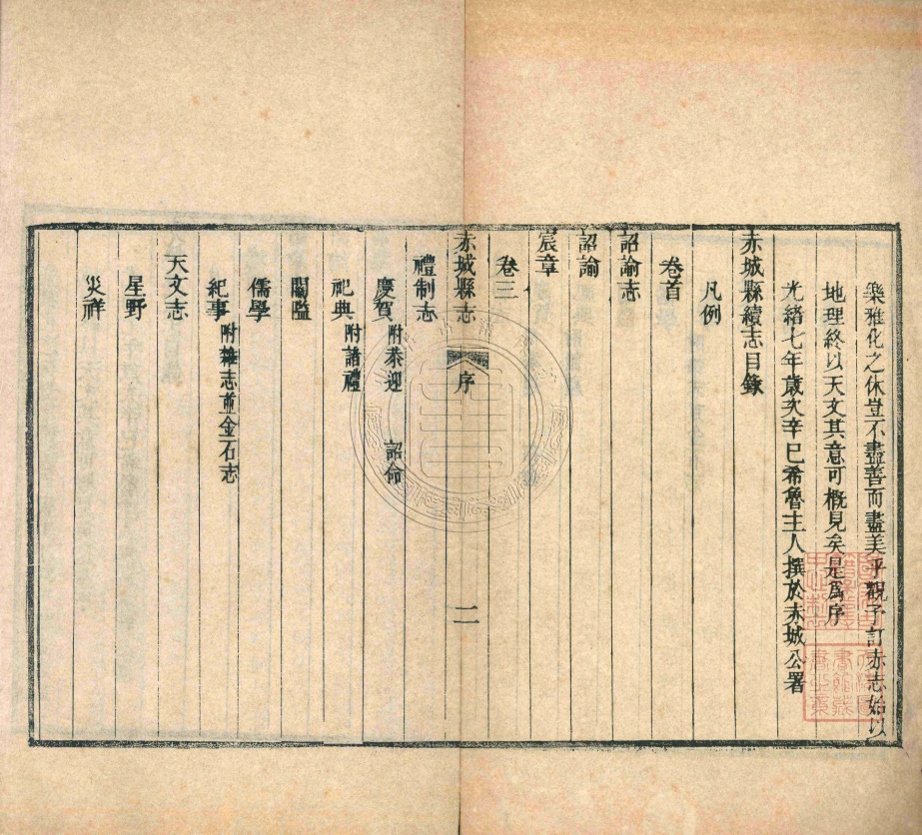 樂雅化之休豈不盡善而盡美乎觀予訂赤志始以
地理終以天文其意可概見矣是為序
光緒七年歲次辛巳希魯主人撰於赤城公署
赤城縣續志目錄
凡例
卷首
詔諭志
詔諭
宸章
卷三
赤城縣志 序 二
禮制志
慶賀 附恭迎 詔命
祀典 附諸禮
鬮隘
儒學
紀事 附雜志並金石志
天文志
星野
災祥